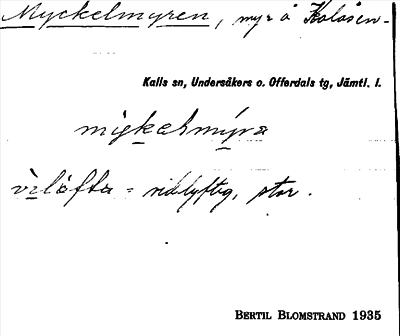 Myckelmyren, myr å Kolåsen-
Kalls sn, Undersåkers o. Offerdals tg, Jämtl. l.
mıykelmýra
vìḷàfta = vidlyftig, stor.
BERTIL BLOMSTRAND 1935